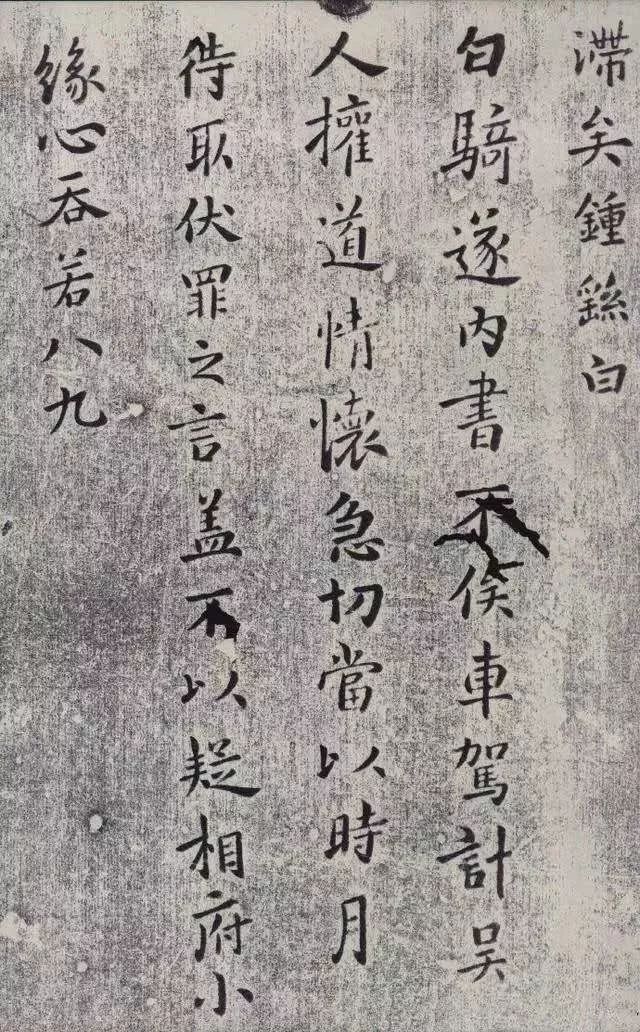 滯矣鍾繇白
白騎遂內書不俟車駕計吴
人權道情懷急切當以時月
待取伏罪之言盖不以疑相府小
緣心吞若八九